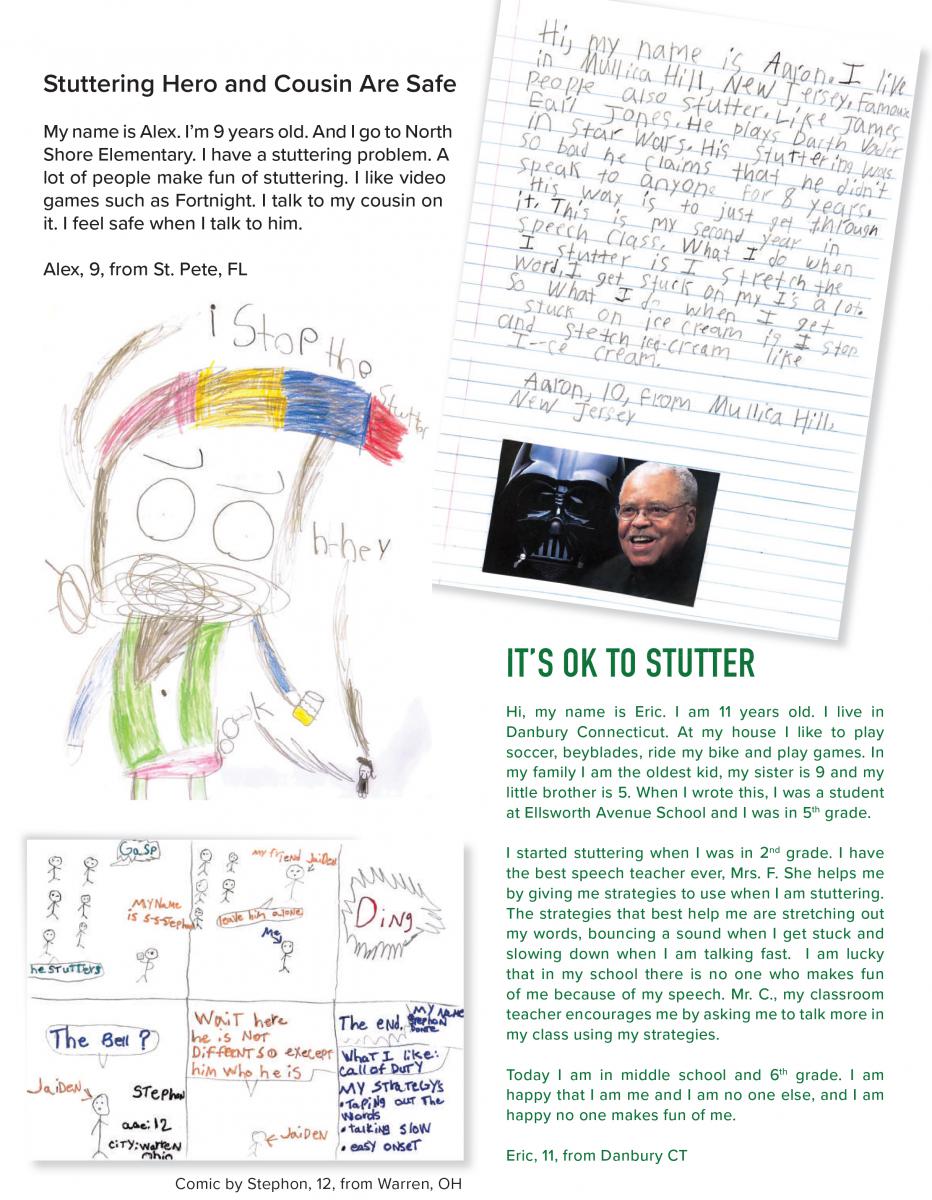 Stuttering Hero and Cousin Are Safe
My name is Alex. I'm 9 years old. And I go to North
Shore Elementary. I have a stuttering problem. A
lot of people make fun of stuttering. I like video
games such as Fortnight. I talk to my cousin on
it. I feel safe when I talk to him.
Alex, 9, from St. Pete, FL
i Stop the
Stutter
h-hey
o-k
Hi, my name is Aaron. I live
in Mullica Hill, New Jersey. Famous
people also stutter. Like James
Earl Jones. He plays Darth Vader
in Star Wars. His stuttering was
so bad he claims that he didn't
speak to anyone for 8 years.
His way is to just get through
it. This is my second year in
speech class. What I do when
I stutter is I stretch the
word. I get stuck on my I's a lot.
So what I do when I get
stuck on ice cream is I stop
and stetch ice-cream like
I--ce cream.
Aaron, 10, from Mullica Hill,
New Jersey
IT'S OK TO STUTTER
Hi, my name is Eric. I am 11 years old. I live in
Danbury Connecticut. At my house I like to play
soccer, beyblades, ride my bike and play games. In
my family I am the oldest kid, my sister is 9 and my
little brother is 5. When I wrote this, I was a student
at Ellsworth Avenue School and I was in 5th grade.
I started stuttering when I was in 2nd grade. I have
the best speech teacher ever, Mrs. F. She helps me
by giving me strategies to use when I am stuttering.
The strategies that best help me are stretching out
my words, bouncing a sound when I get stuck and
slowing down when I am talking fast. I am lucky
that in my school there is no one who makes fun
of me because of my speech. Mr. C., my classroom
teacher encourages me by asking me to talk more in
my class using my strategies.
Today I am in middle school and 6th grade. I am
happy that I am me and I am no one else, and I am
happy no one makes fun of me.
Eric, 11, from Danbury CT
Gasp
My Name
is S-S-Stephon
he stutters
my friend Jaiden
leave him alone
Me
Ding
The Bell ?
Jaiden
Stephon
age: 12
City: Warren
Ohio
Wait here
he is Not
Different so execept
him who he is
Jaiden
The end.
My Name
Stephon
What I like:
call of Duty
My strategys
• Taping out the
words
• talking slow
• easy onset
Comic by Stephon, 12, from Warren, OH